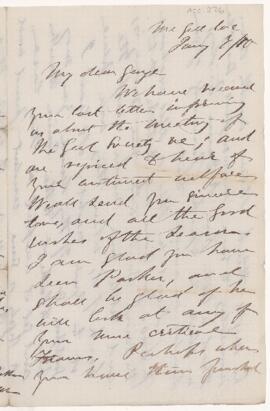 McGill Col
Jany 3/80
My dear George
We have received
your last letter informing
us about the meeting of
the Geol Society &c; and
are rejoiced to hear of
your continued welfare
We all send you sincere
love, and all the good
wishes of the season
I am glad you have
seen Parker, and
shall be glad if he
will look at any of
your more critical
Forams. Perhaps when
you have them finished